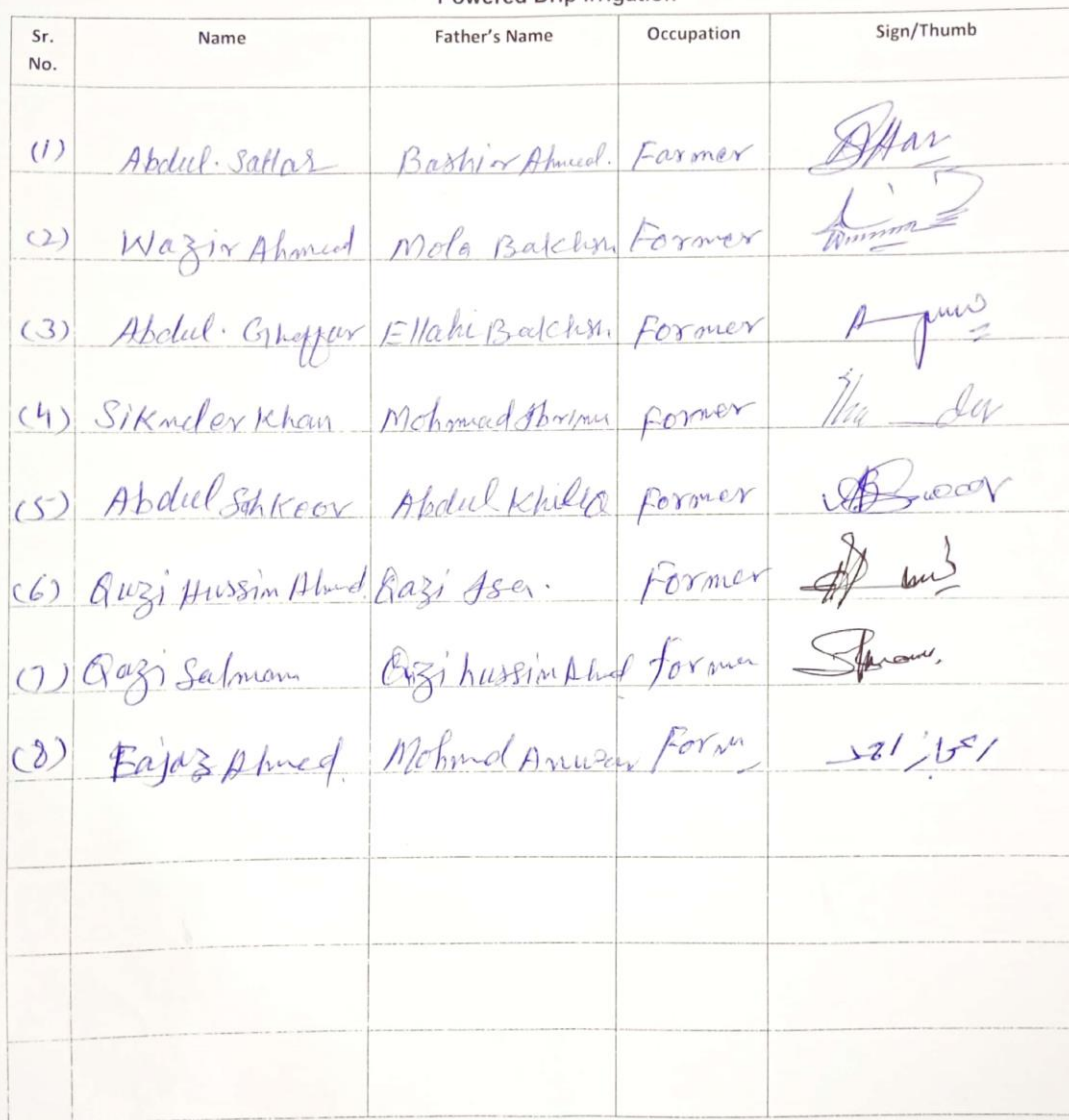 Powered Drip Irrigation
Sr. No. Name Father's Name Occupation Sign/Thumb
(1) Abdul. Sattar Bashir Ahmed. Farmer
(2) Wazir Ahmed Mola Bakhsh Former
(3) Abdul. Ghaffar Ellahi Bakhsh Former
(4) Siknder Khan Mohmmad Former
(5) Abdul Sohkeor Abdul Khiliq Former
(6) Quzi Hussin Ahmd Qazi Isa. Former
(7) Qazi Salman Qazi hussin Ahmd former
(8) Eajaz Ahmed. Mohmd Anwar Form اعجاز احمد